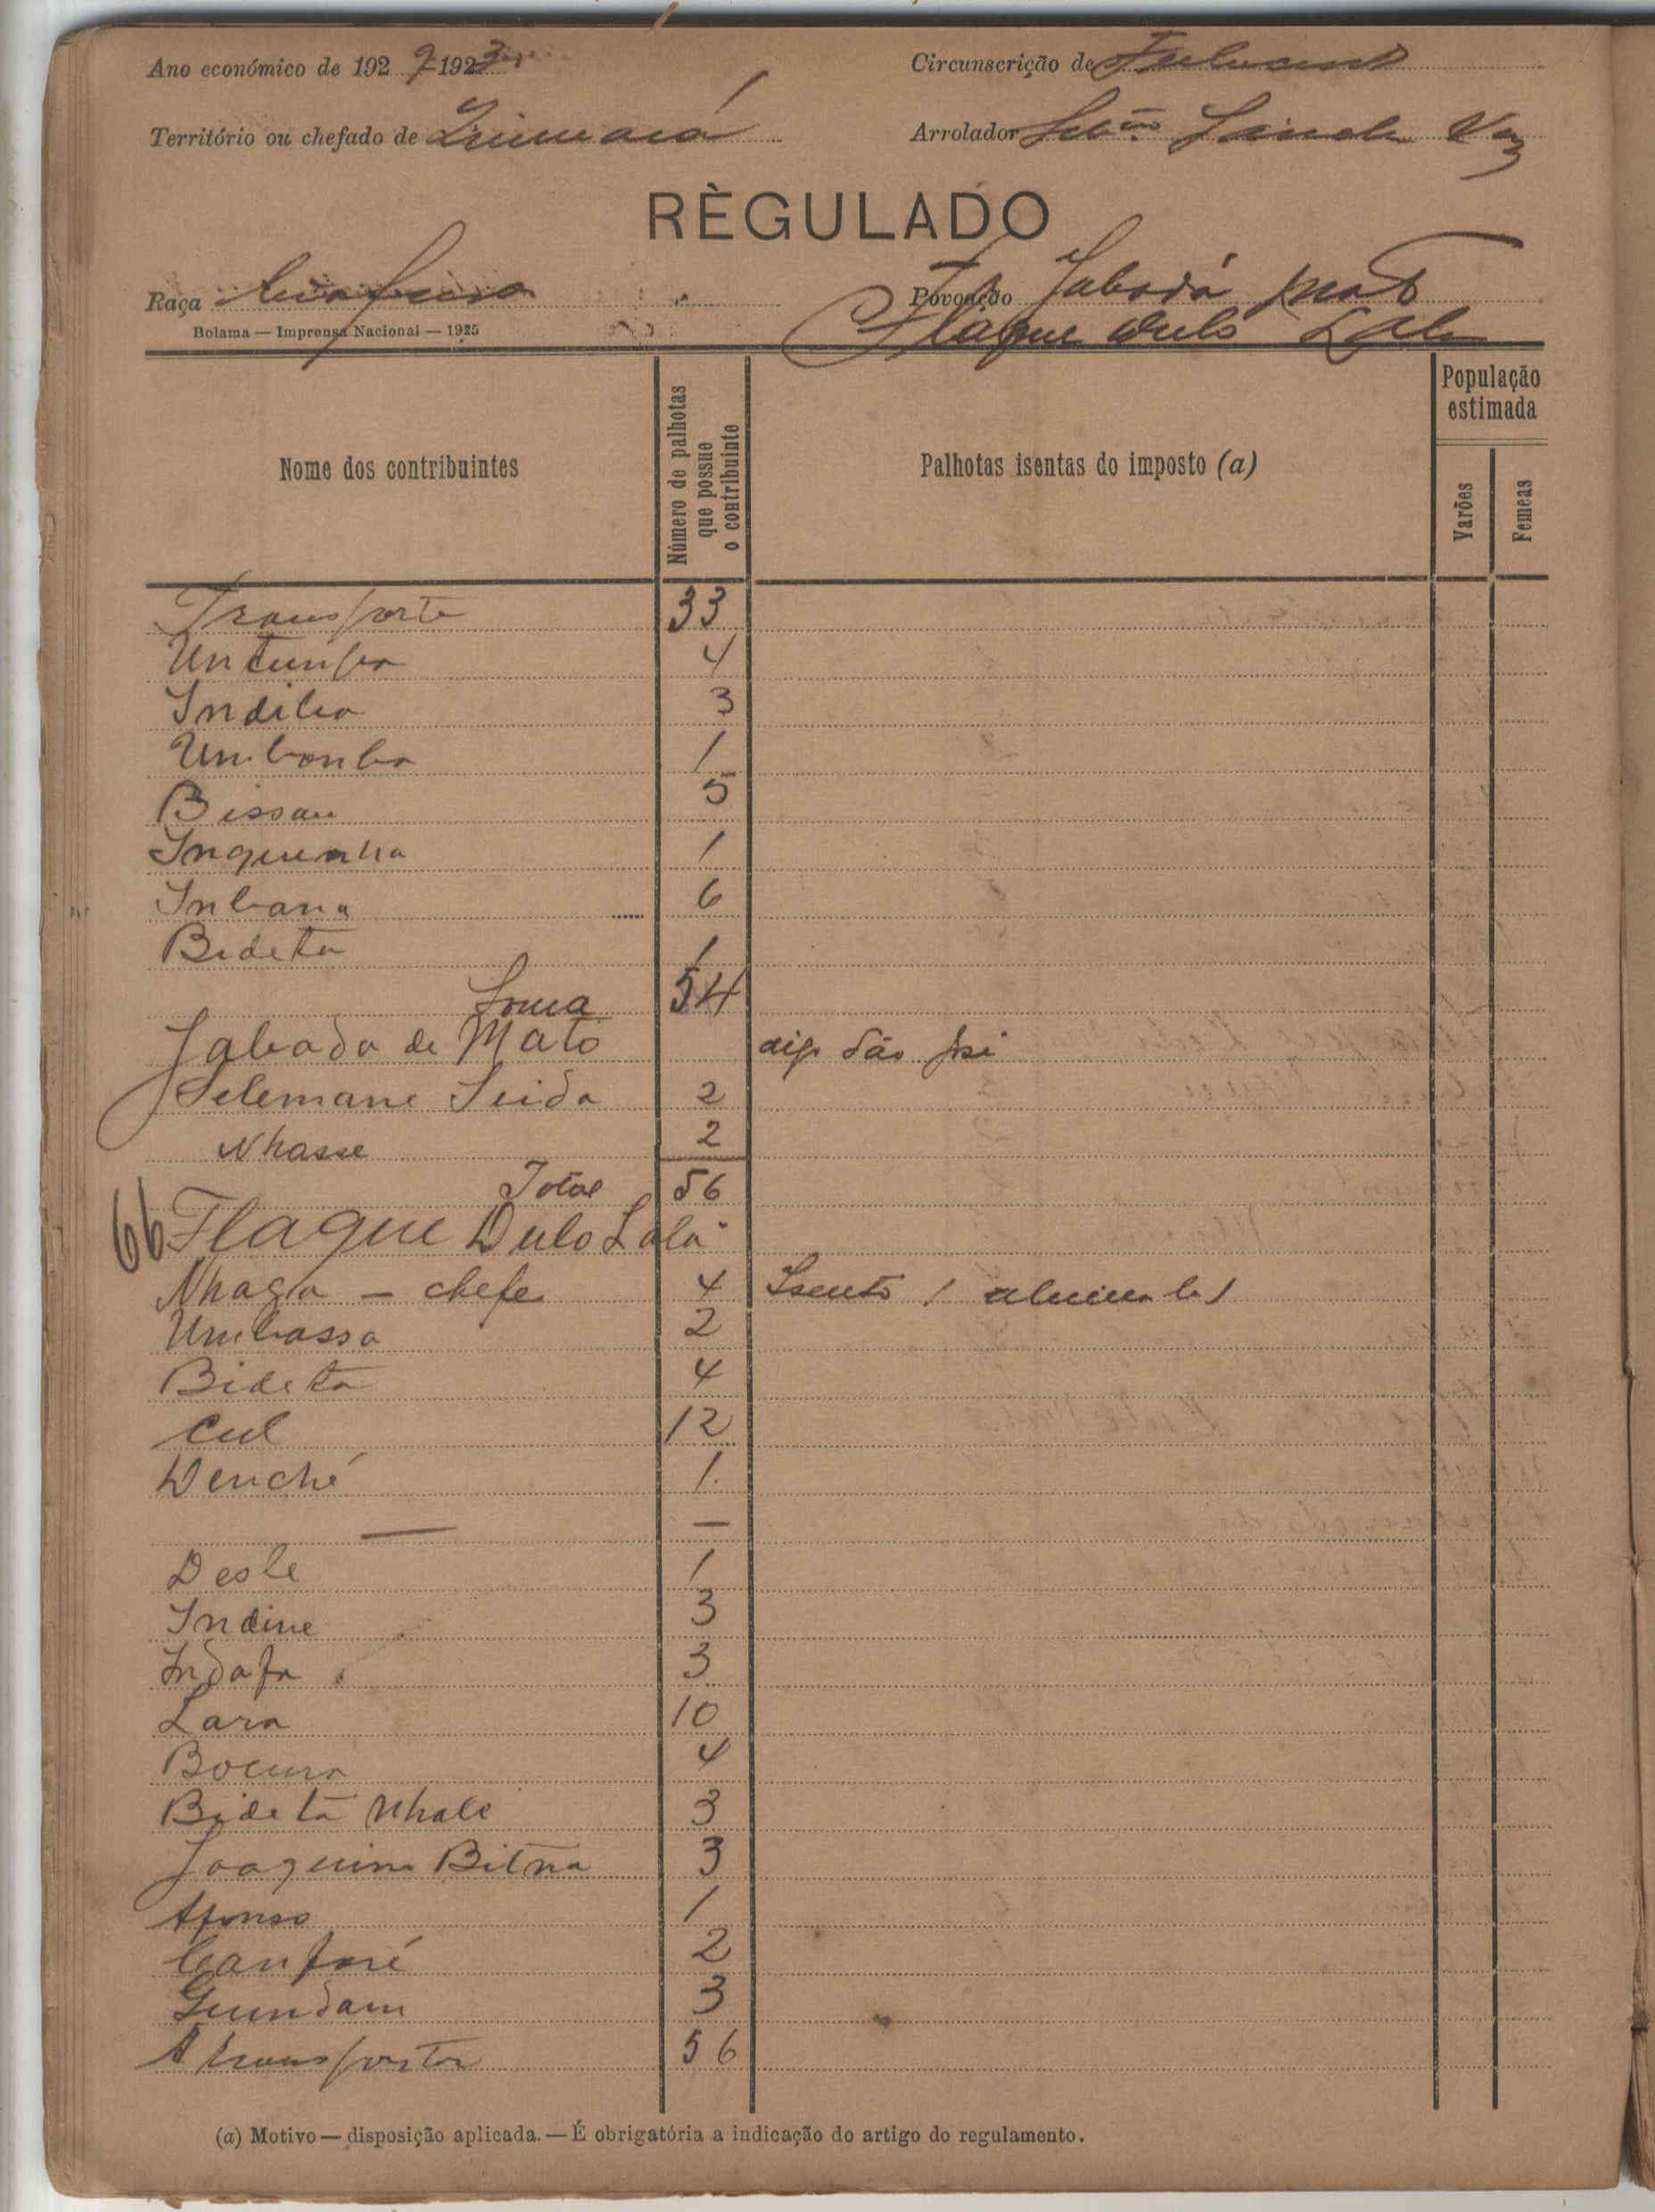 Ano económico de 192 9-1923
Circunscrição de Fulacunda
Território ou chefado de Quinará
Arrolador Vaz
RÈGULADO
Raça Beafada
Povoação Jabadá Mato
Bolama — Imprensa Nacional — 1925
Flaque Dulo Lala
Nome dos contribuintes
Número de palhotas que possue o contribuinte
Palhotas isentas do imposto (a)
População estimada
Varões
Femeas
Transporte 33
Untunfa 4
Indiba 3
Umbomba 1
Bissau 5
Inquenha 1
Inbana 6
Bideta 1
Soma 54
Jabada de Mato
Selemane Seida 2
Nhasse 2
Total 56
66 Flaque Dulo Lala
Nhaga — chefe 4 Isento
Umbassa 2
Bideta 4
Cul 12
Denché 1
— —
Desle 1
Indine 3
Indafa 3
Lara 10
Bocura 4
Bideta Nhale 3
Joaquim Bitna 3
Afonso 1
Canforé 2
Guindam 3
A transportar 56
(a) Motivo — disposição aplicada. — É obrigatória a indicação do artigo do regulamento.